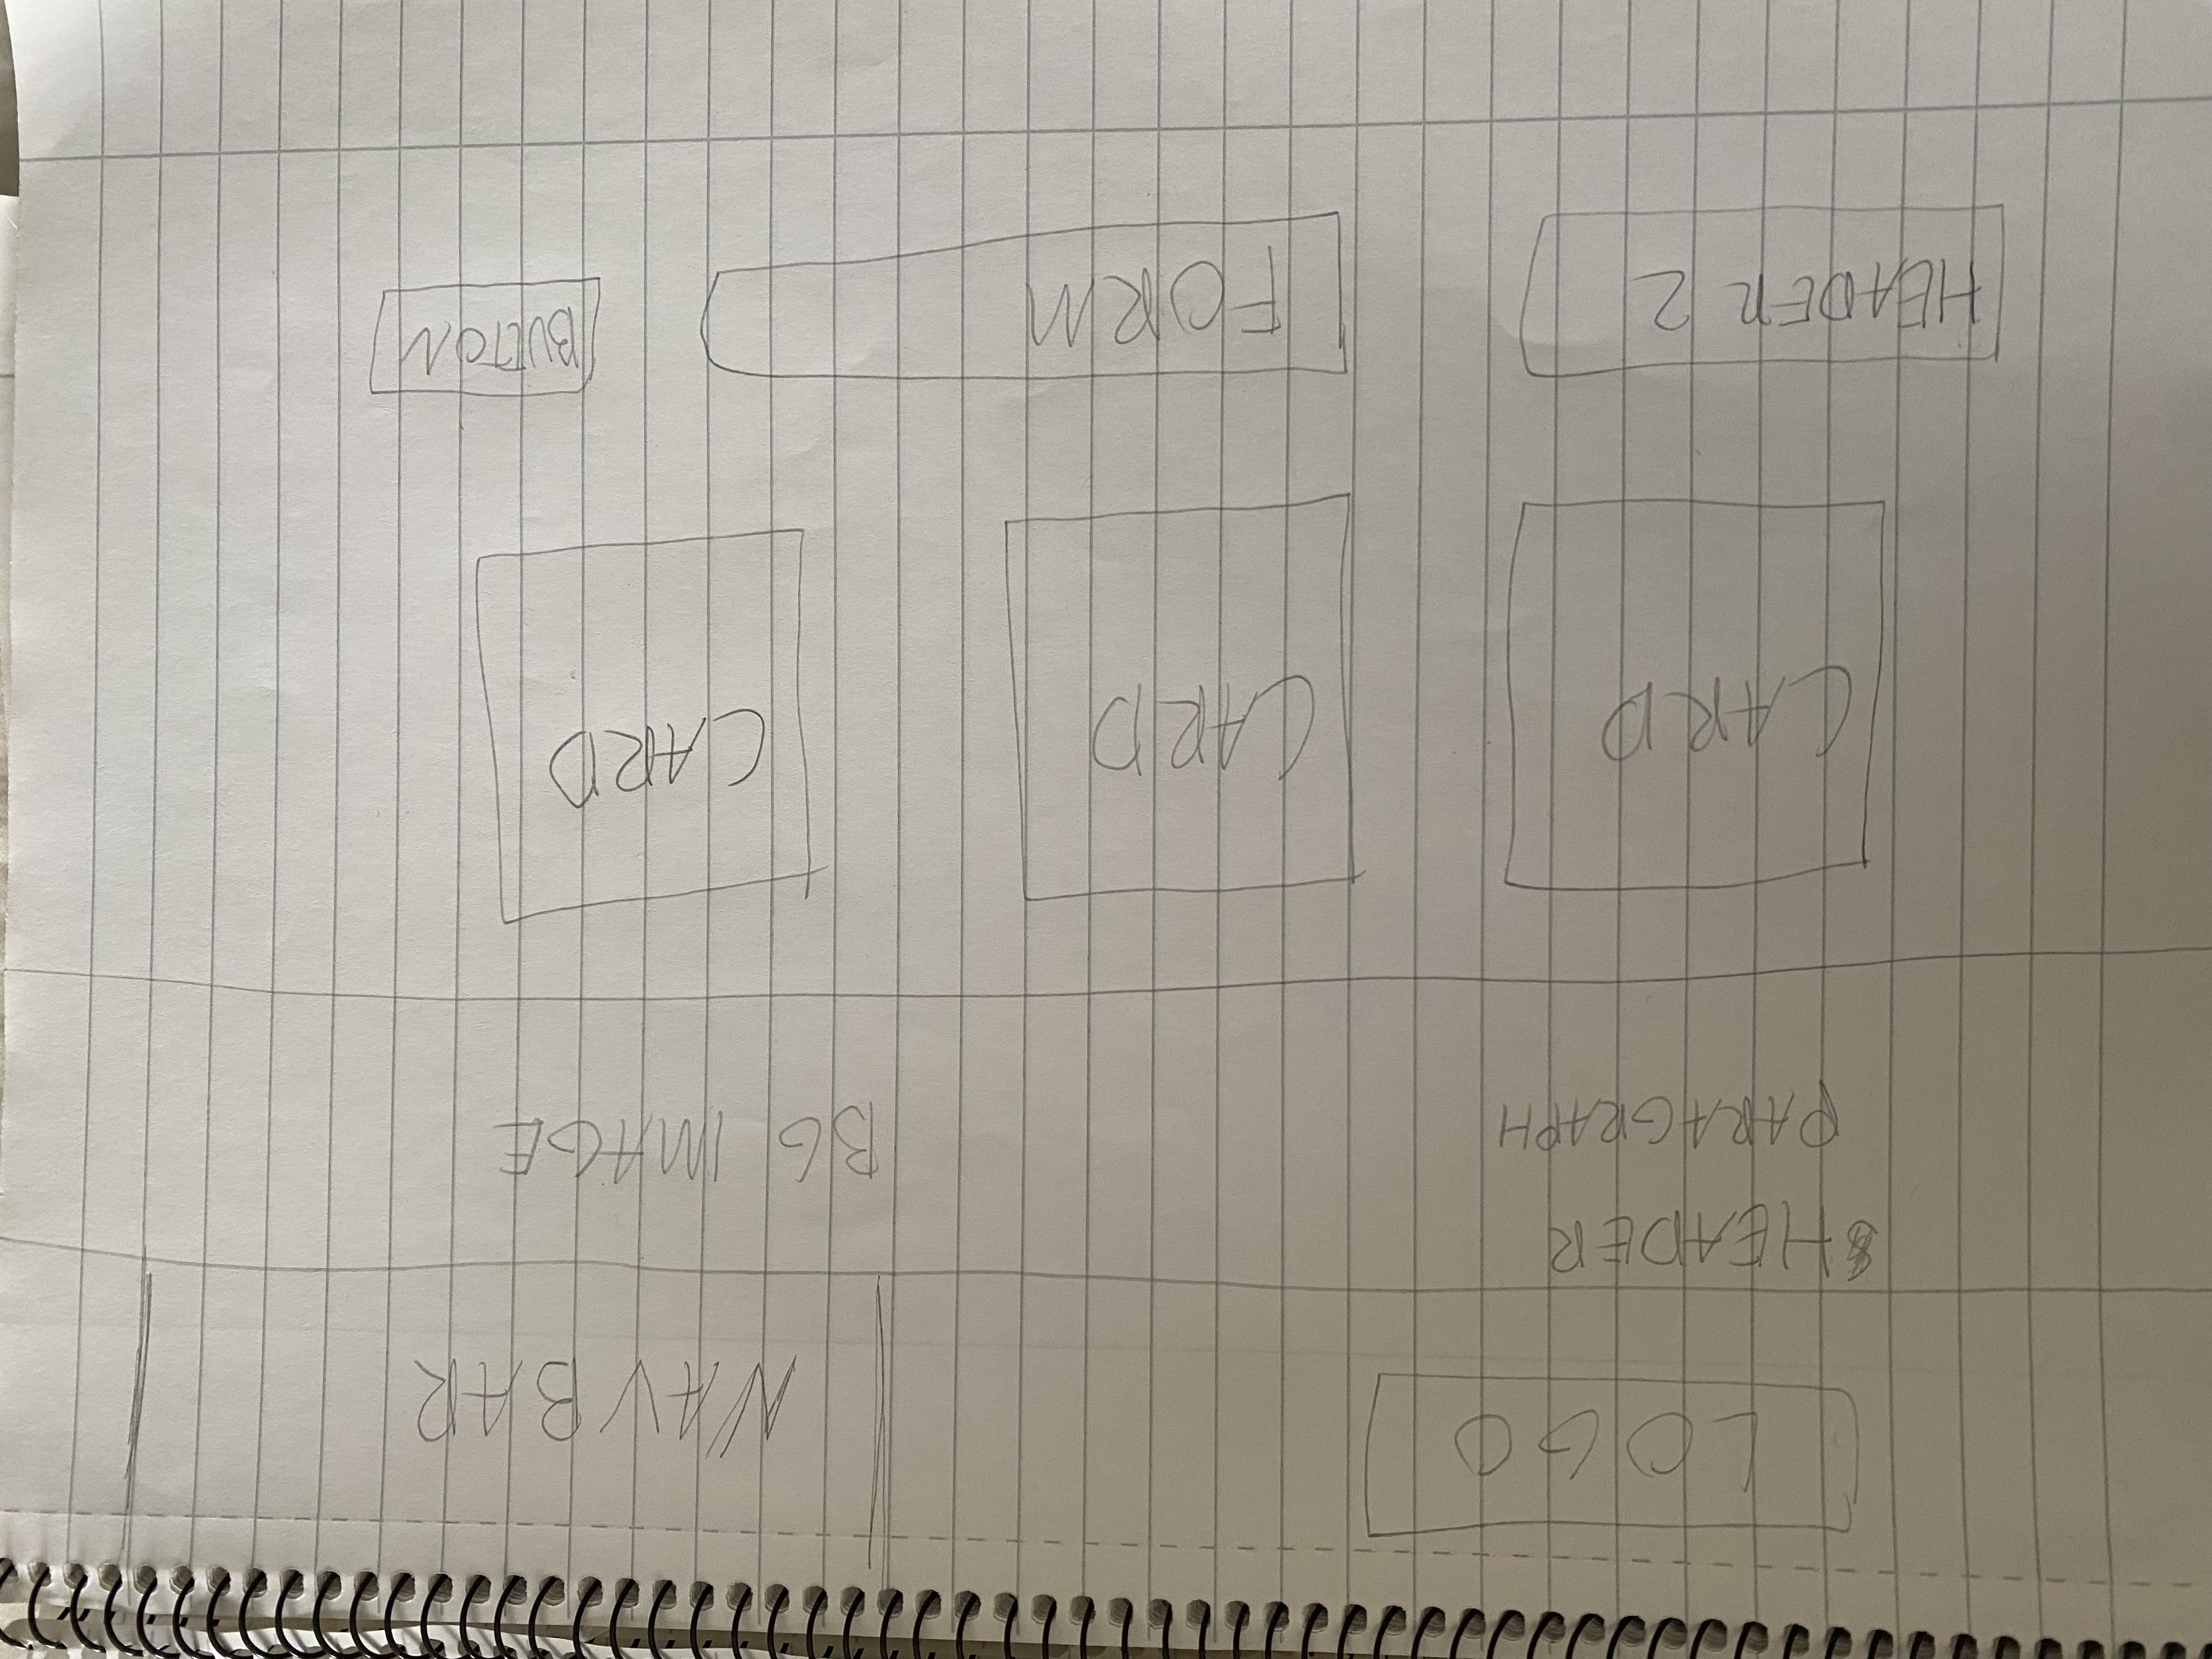 LOGO NAV BAR
HEADER
PARAGRAPH BG IMAGE
CARD CARD CARD
HEADER 2 FORM BUTTON